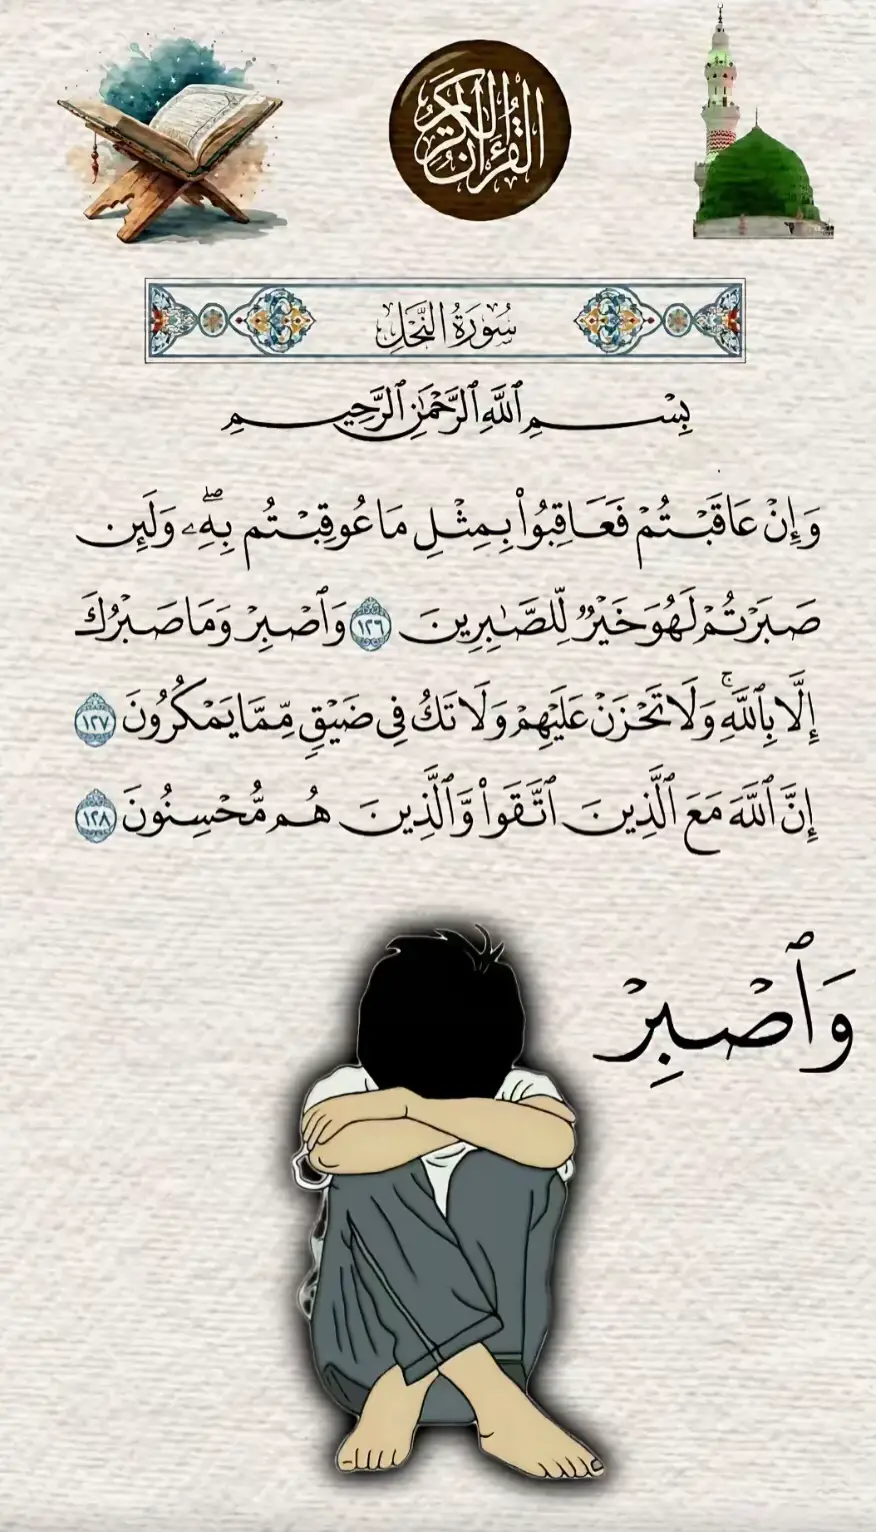 القرآن الكريم
سُورَةُ النَّحۡلِ
بِسۡمِ ٱللَّهِ ٱلرَّحۡمَٰنِ ٱلرَّحِيمِ
وَإِنۡ عَاقَبۡتُمۡ فَعَاقِبُواْ بِمِثۡلِ مَا عُوقِبۡتُم بِهِۦۖ وَلَئِن
صَبَرۡتُمۡ لَهُوَ خَيۡرٞ لِّلصَّٰبِرِينَ ١٢٦ وَٱصۡبِرۡ وَمَا صَبۡرُكَ
إِلَّا بِٱللَّهِۚ وَلَا تَحۡزَنۡ عَلَيۡهِمۡ وَلَا تَكُ فِي ضَيۡقٖ مِّمَّا يَمۡكُرُونَ ١٢٧
إِنَّ ٱللَّهَ مَعَ ٱلَّذِينَ ٱتَّقَواْ وَّٱلَّذِينَ هُم مُّحۡسِنُونَ ١٢٨
وَٱصۡبِرۡ